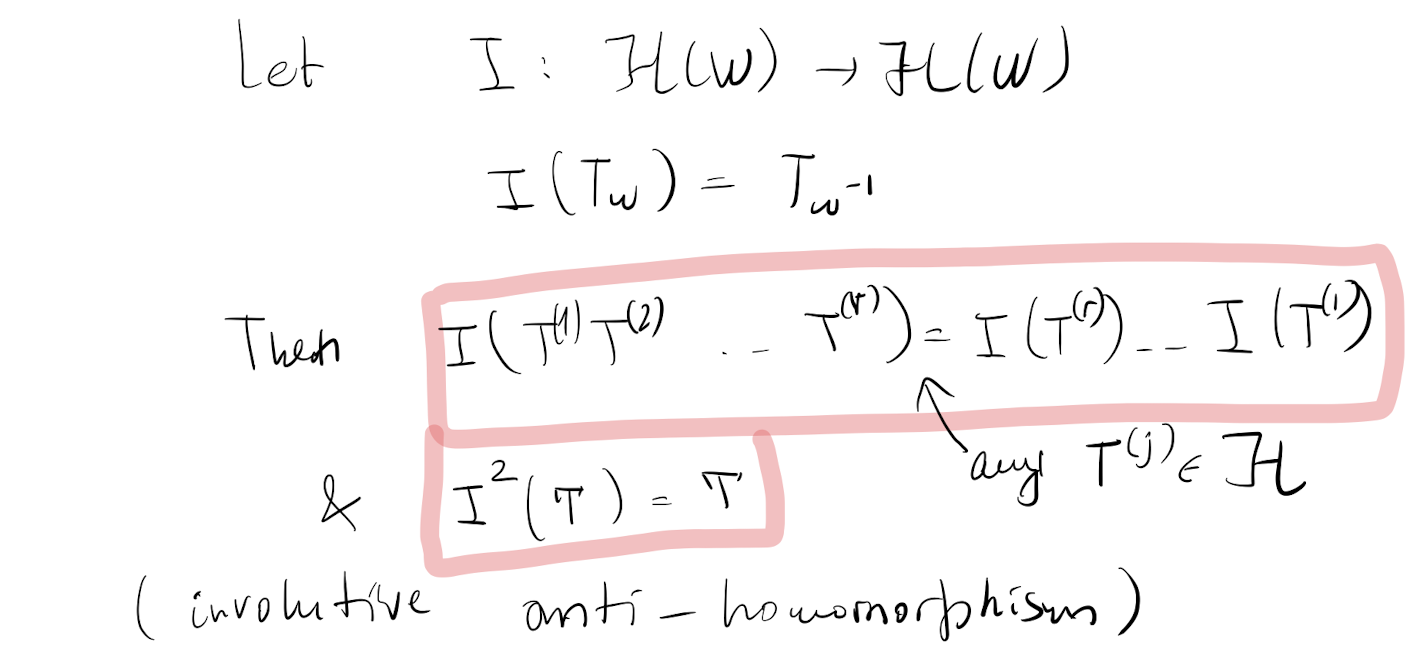 Let I : ℋ(W) → ℋ(W)
I(T_w) = T_{w^{-1}}
Then I(T^{(1)} T^{(2)} ... T^{(r)}) = I(T^{(r)}) --- I(T^{(1)})
any T^{(j)} ∈ ℋ
& I^2(T) = T
(involutive anti-homomorphism)